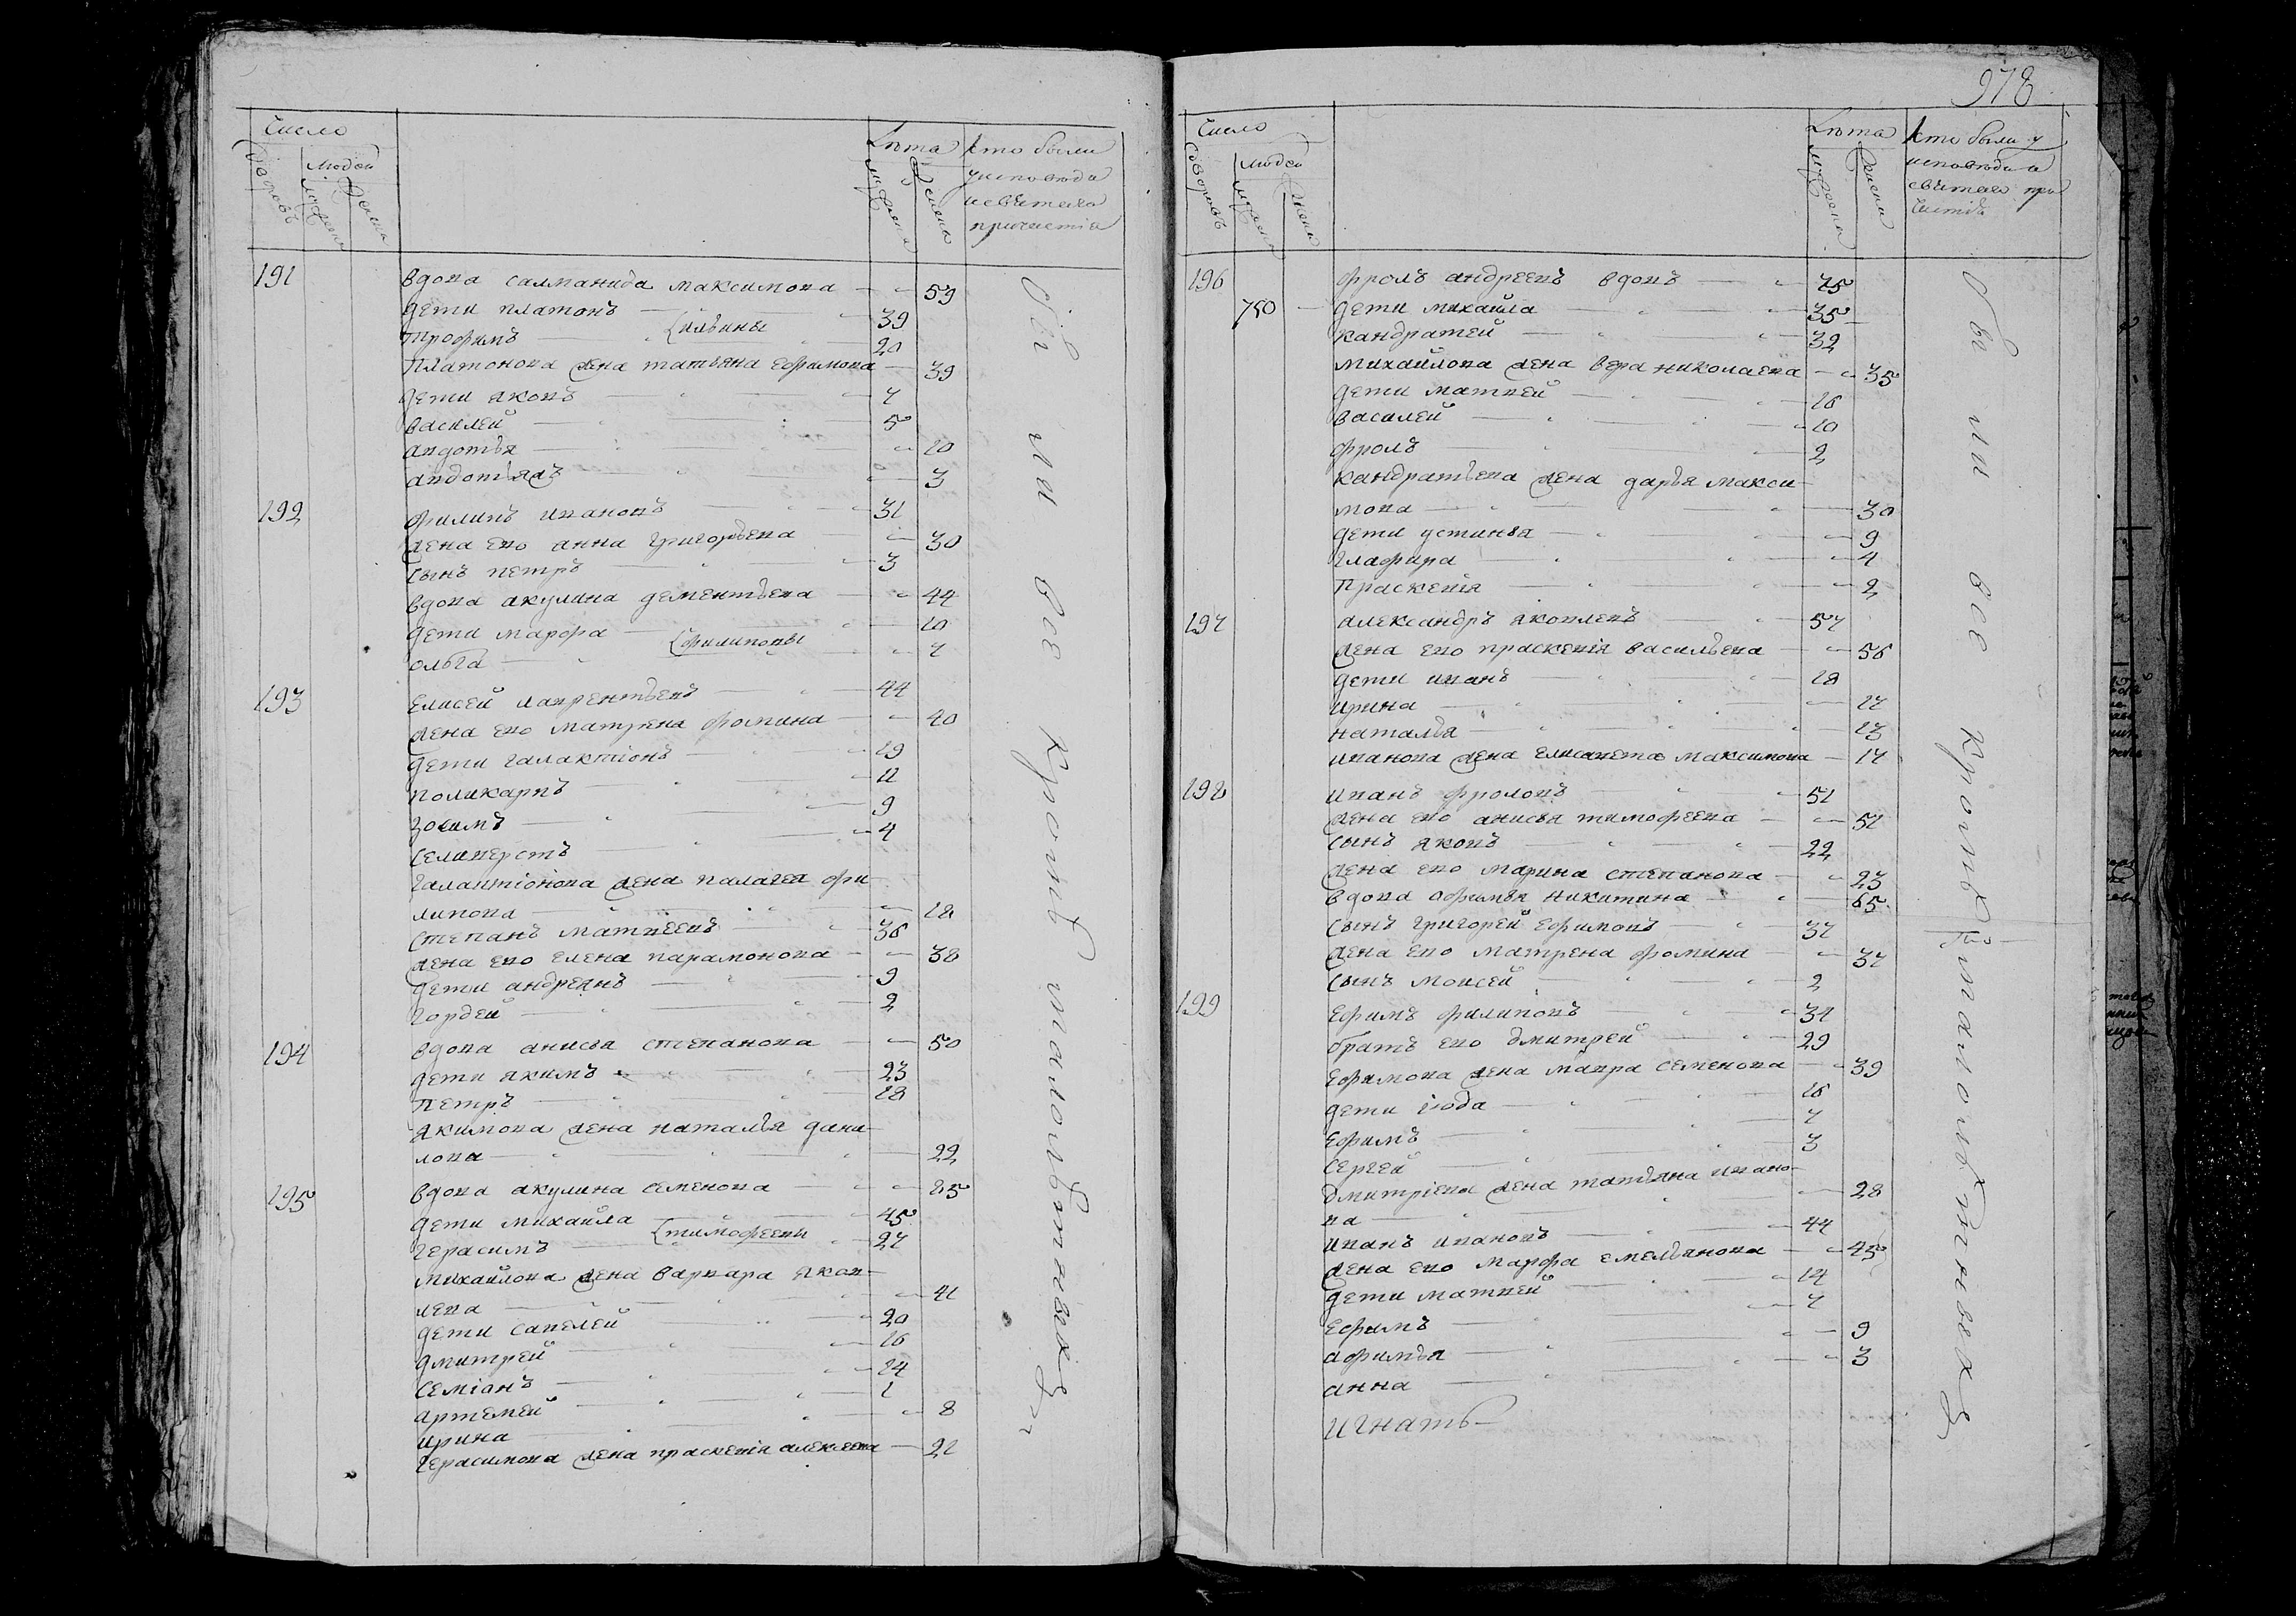 978
Число
дворовъ
людей
мужска
женска
Лѣта
мужска
женска
кто были
у исповѣди
и святаго
причастія
191 вдова салманида максимова 59
дети платонъ 39
трофимъ { илвины 20
платонова жена татьяна ефимова 39
дети яковъ 7
василей 5
авдотья 10
авдотьяжъ 3
192 филипъ ивановъ 31
жена ево анна григорьева 30
сынъ петръ 3
вдова акулина дементьева 44
дети марфа 10
ольга { филиповы 7
193 елисей лаврентьевъ 44
жена ево матрена фомина 40
дети галактіонъ 19
поликарпъ 11
зосимъ 9
селиверстъ 4
галактіонова жена палагея фи-
липова 18
степанъ матвеевъ 36
жена ево елена парамонова 38
дети андреянъ 9
гордей 2
194 вдова анисья степанова 50
дети якимъ 23
петръ 18
якимова жена наталья дани-
лова 22
195 вдова акулина семенова 85
дети михайла 45
герасимъ { тимофеевы 27
михайлова жена варвара яков-
лева 41
дети савелей 20
дмитрей 16
семіанъ 14
артемей 1
ирина 8
герасимова жена праскевія алексеева 21
были все кроме малолѣтныхъ
Число
дворовъ
людей
мужска
жена
Лѣта
мужска
женска
кто были у
исповѣди и
святаго при
частія
196 фролъ андреевъ вдовъ 75
750 дети михайла 35
кандратей 32
михайлова жена вера николаева 35
дети матвей 16
василей 10
фролъ 2
кандратьева жена дарья макси-
мова 30
дети устинья 9
глафира 4
праскевія 2
197 александръ яковлевъ 57
жена ево праскевія васильева 56
дети иванъ 18
ирина 17
наталья 13
иванова жена елисавета максимова 17
198 иванъ фроловъ 51
жена ево анисья тимофеева 51
сынъ яковъ 22
жена ево марина степанова 23
вдова афимья никитина 65
сынъ григорей ефимовъ 37
жена ево матрена фомина 37
сынъ моисей 2
199 ефимъ филиповъ 37
братъ ево дмитрей 29
ефимова жена мавра семенова 39
дети іюда 16
ефимъ 7
сергей 3
дмитріева жена татьяна ивано-
ва 28
иванъ ивановъ 44
жена ево марфа емельянова 45
дети матвей 14
ефимъ 7
афимья 9
анна 3
игнать-
были все кроме малолѣтныхъ